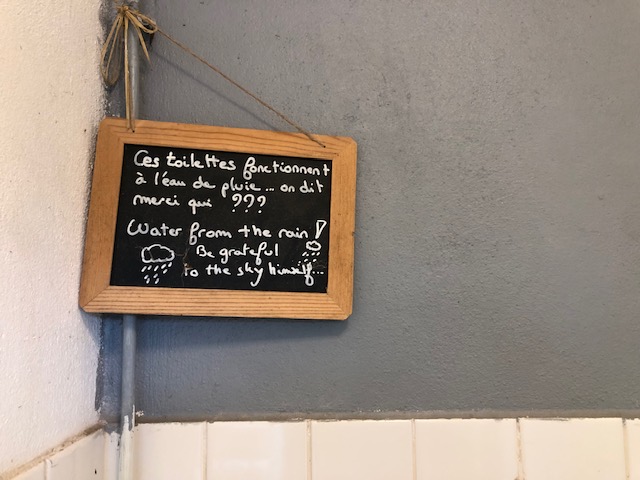 Ces toilettes fonctionnent
à l'eau de pluie... on dit
merci qui ???
Water from the rain !
Be grateful
to the sky himself...